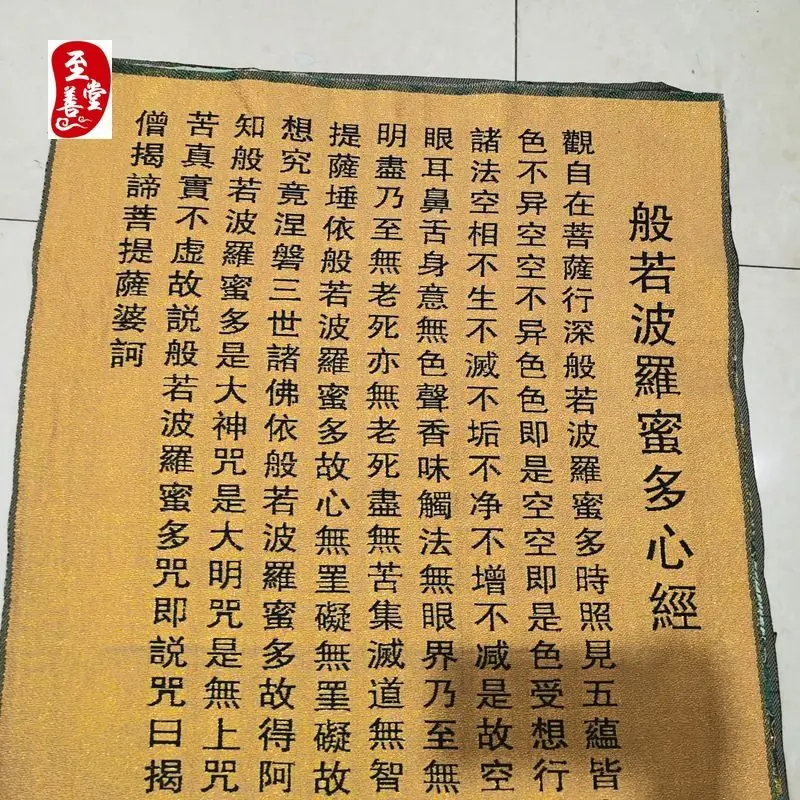 至善堂
般若波羅蜜多心經
觀自在菩薩行深般若波羅蜜多時照見五蘊皆
色不异空空不异色色即是空空即是色受想行
諸法空相不生不滅不垢不净不增不减是故空
眼耳鼻舌身意無色聲香味觸法無眼界乃至無
明盡乃至無老死亦無老死盡無苦集滅道無智
提薩埵依般若波羅蜜多故心無罣礙無罣礙故
想究竟涅磐三世諸佛依般若波羅蜜多故得阿
知般若波羅蜜多是大神咒是大明咒是無上咒
苦真實不虛故説般若波羅蜜多咒即説咒曰揭
僧揭諦菩提薩婆訶